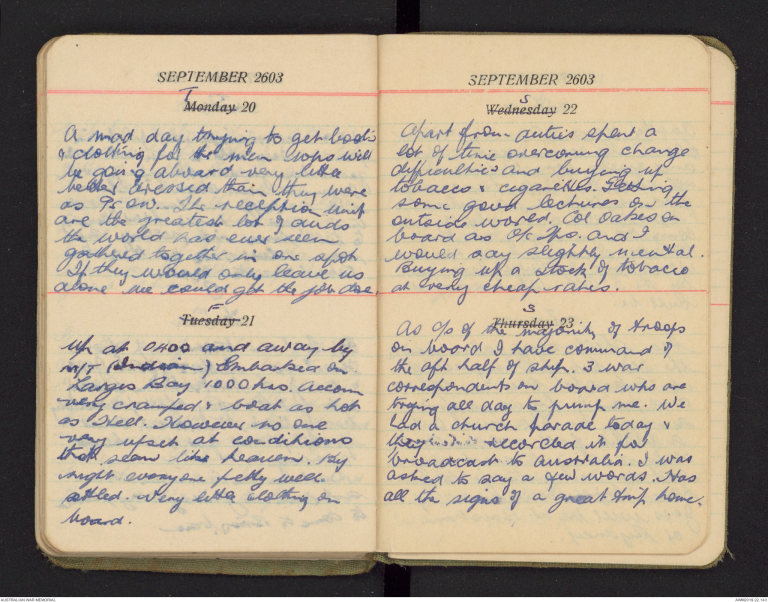 SEPTEMBER 2603
T
Monday 20
A mad day trying to get boots
& clothing for the men who will
be going aboard very little
better dressed than they were
as Ps.ow. The reception unit
are the greatest lot of duds
the world has ever seen
gathered together in one spot
If they would only leave us
alone we could get the job done.
F
Tuesday 21
Up at 0400 and away by
M/T (Indian) Embarked on
Largs Bay 1000 hrs. Accom
very cramped & boat as hot
as Hell. However no one
very upset at conditions
that seem like heaven. By
night everyone pretty well
settled. Very little clothing on
board.
SEPTEMBER 2603
S
Wednesday 22
Apart from duties spent a
lot of time overcoming change
difficulties and buying up
tobacco & cigarettes. Getting
some good lectures on the
outside world. Col Oakes on
board as OC Tps. and I
would say slightly mental.
Buying up a stock of tobacco
at very cheap rates.
S
Thursday 23
As C/o of the majority of troops
on board I have command of
the aft half of ship. 3 war
correspondents on board who are
trying all day to pump me. We
had a church parade today &
they recorded it for
broadcast to Australia. I was
asked to say a few words. Has
all the signs of a great trip home.
AUSTRALIAN WAR MEMORIAL